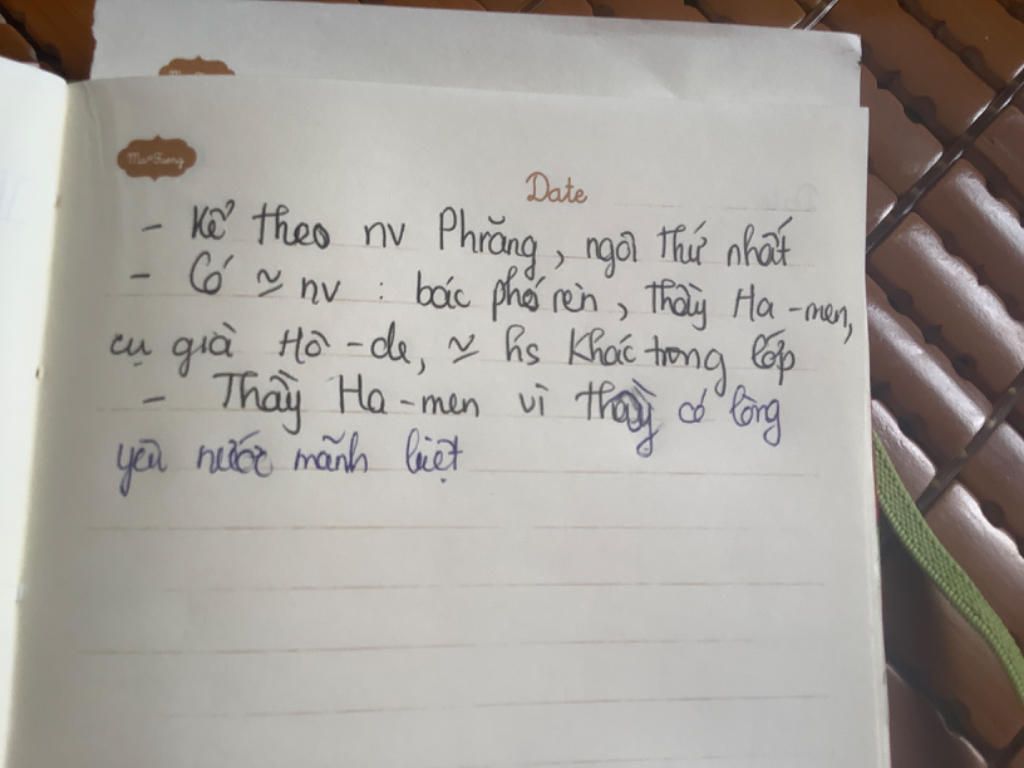 Date
- Kể theo nv Phrăng, ngôi thứ nhất
- Có ≈ nv : bác phó rèn, thầy Ha-men,
cụ già Hô-de, ≈ hs khác trong lớp
- Thầy Ha-men vì thầy có lòng
yêu nước mãnh liệt